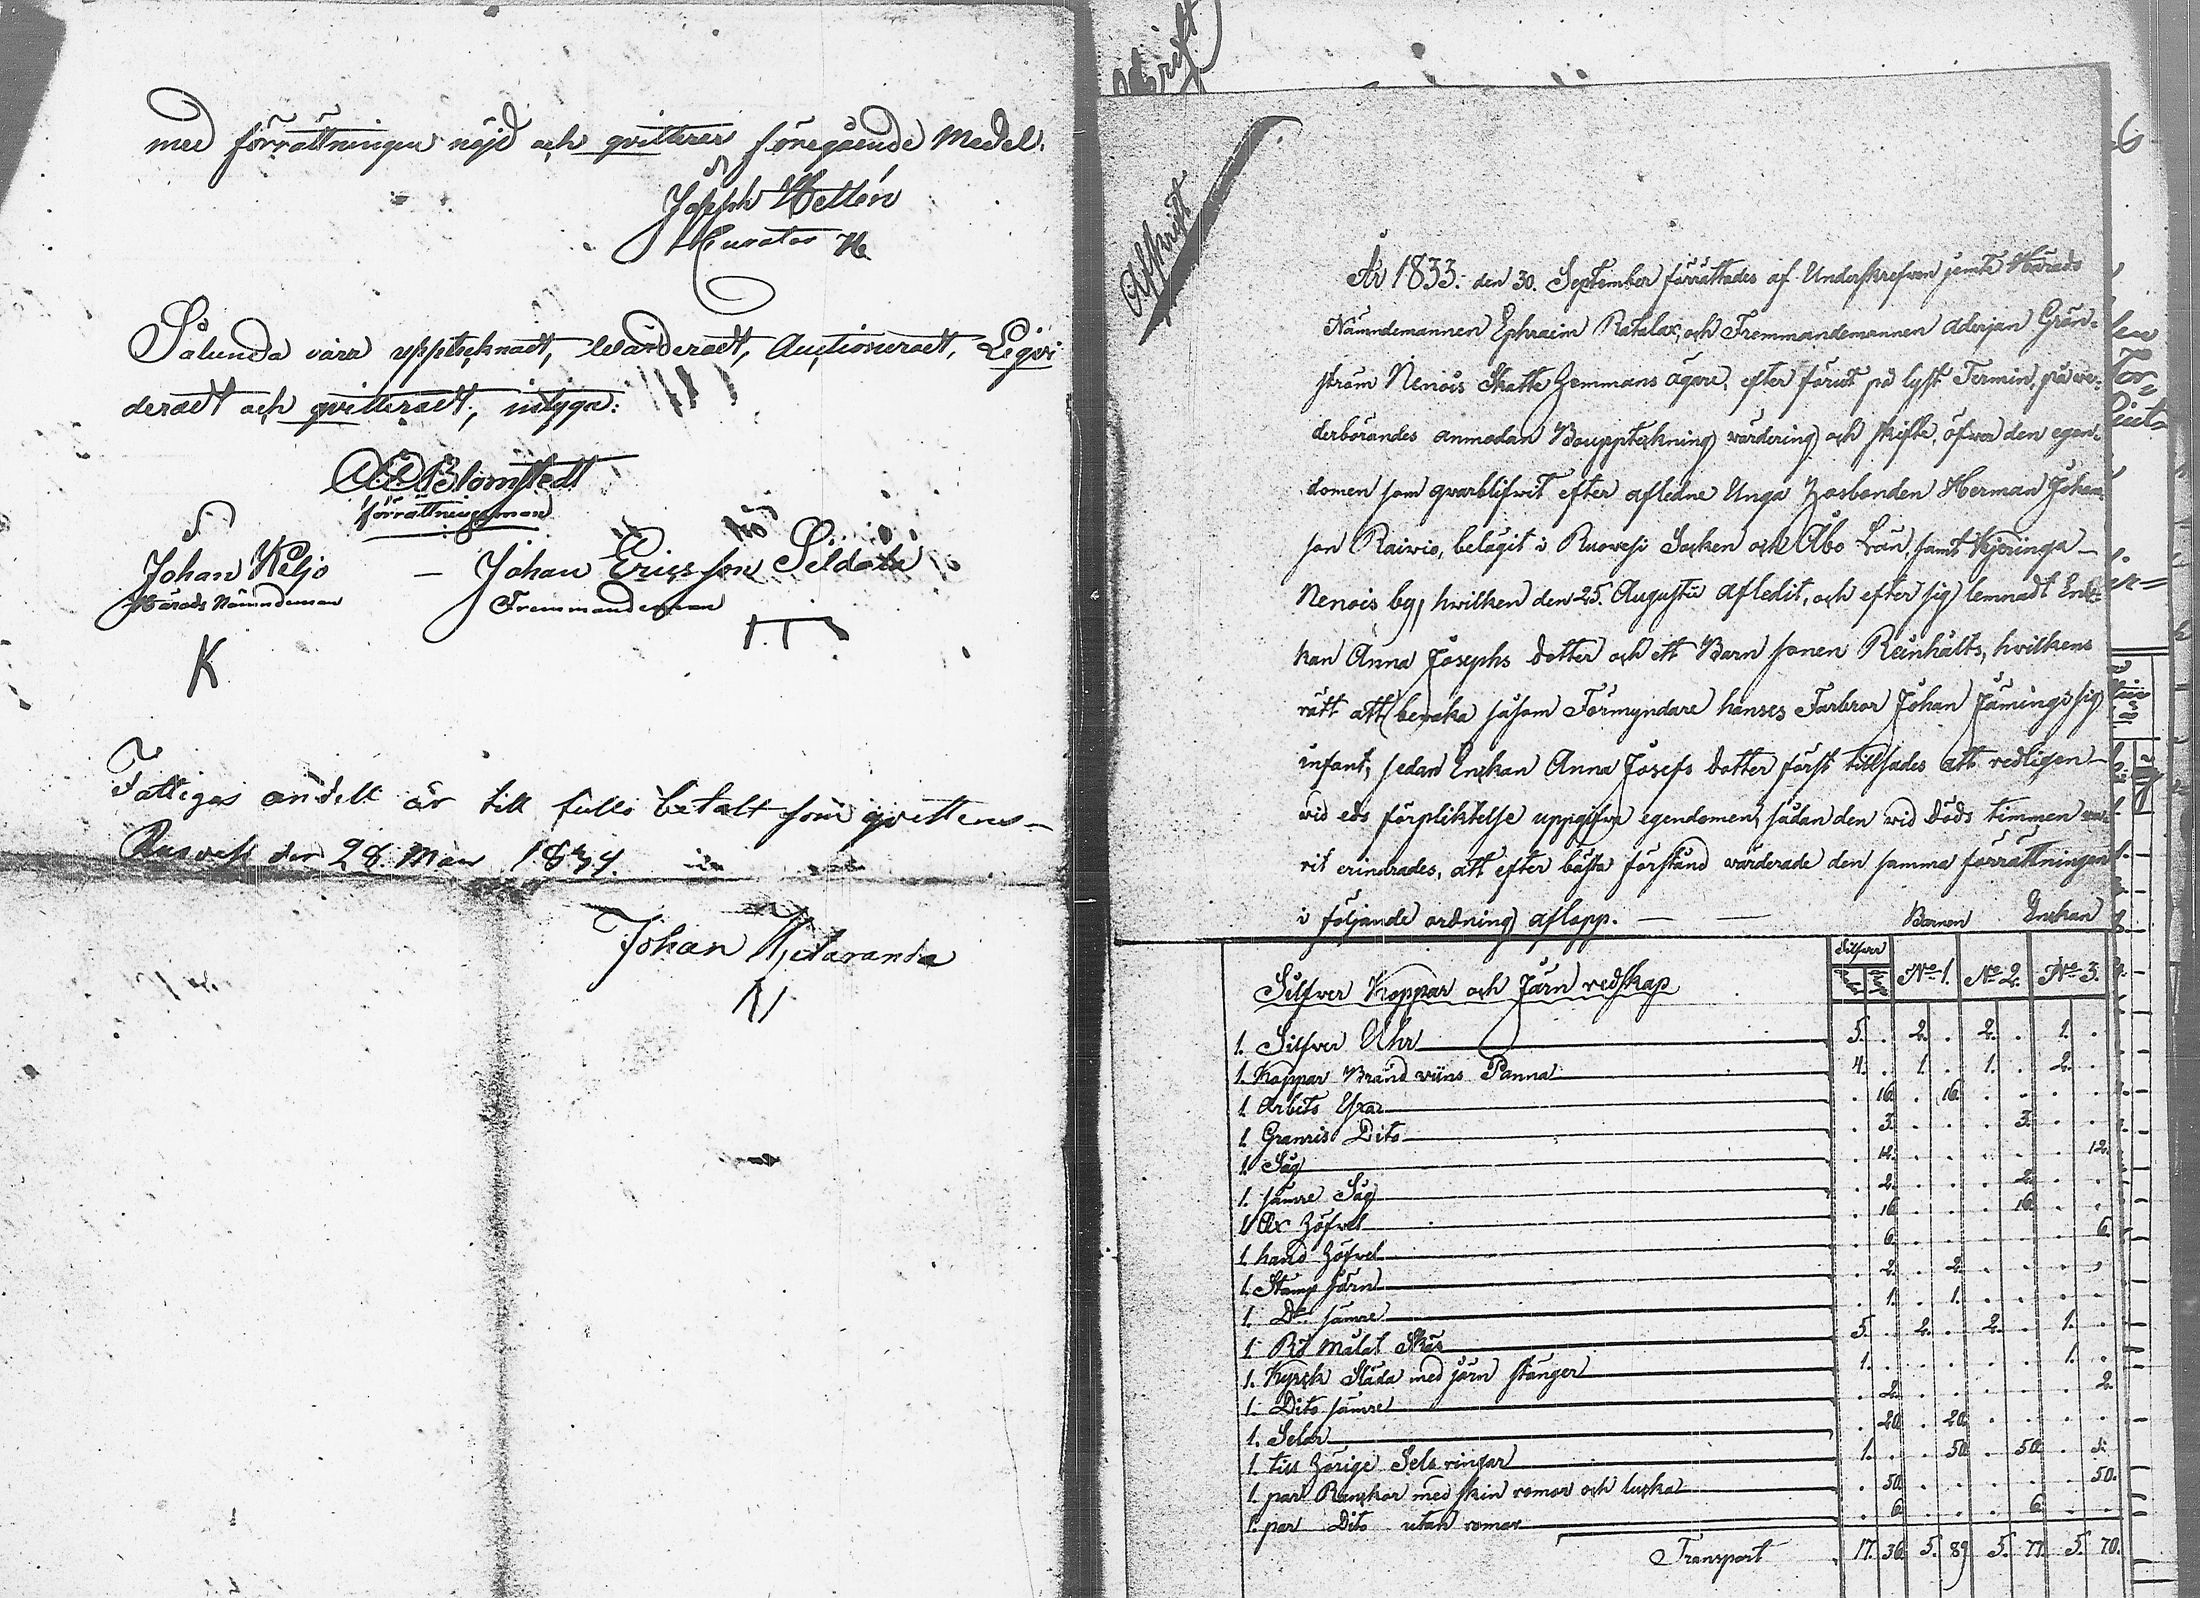 med förrättningen nöjd och qvitterar föregående Medel.
Joseph Hellén
Curator
Sålunda vara upptecknadt, Värderadt, Auctioneradt, Liqvi
deradt och qvitteradt, intyga:
Blomstedt
förrättningsman
Johan Weljo — Johan Ericsson Sildala
Härads Nämndeman Fremmandeman
K
Fattiges andell är till fullo betalt som qvitteras
Ruovesi den 28. Maij 1834.
Johan Ketaranta
N
Afskrift
År 1833. den 30. September förrättades af Underskrefven jemte Härads
Nämndemannen Ephraim Ratalax, och Fremmandemannen Aderjan Grön-
ström Nenois Skatte Hemmans ägare, efter förut på lyst Termin, på we-
derbörandes anmodan Bouppteckning värdering och skifte, öfwer den egen-
domen som qvarblifwit efter afledne Unga Husbonden Herman Johans
son Raiwio, belägit i Ruovesi Socken och Åbo Län, samt Kjeringa
Nenois by, hwilken den 25. Augusti afledit, och efter sig lemnadt Enk-
kan Anna Josephs dotter och ett Barn sonen Reinhålts, hvilkens
rätt att bevaka såsom Förmyndare hanses Farbror Johan Jämings sig
infant, sedan Enckan Anna Josefs dotter först tillsades att redligen
wid eds förpliktelse uppgifva egendomen, sådan den wid döds timmen wa-
rit erindrades, att efter bästa förstånd värderade den samma förrättningen
i följande ordning aflopp. — — Barnen Enckan
Silfver Koppar och Järn redskap Silfver No 1. No 2. No 3.
1. Silfver Uhr 5. . 2. . 2. . 1. .
1. Koppar Bränd viins Panna 4. . 1. . 1. . 2. .
1. Arbets Yxa . 16. . 16. . . . .
1. Granris Dito . 3. . . . 3. . .
1. Såg . 12. . . . . . 12.
1. sämre Såg . 2. . . . 2. . .
1. Ax Höfvel . 16. . . . 16. . .
1. hand Höfvel . 6. . . . . . 6.
1. Stamp Järn . 2. . 2. . . . .
1. Do sämre . 1. . 1. . . . .
1. Rö Målat Skås 5. . 2. . 2. . 1. .
1. Kyrck Släda med järn stänger 1. . . . . . 1. .
1. Dito sämre . 2. . . . . . 2.
1. Selar . 20. . 20. . . . .
1. till hörige Sele ringar 1. . . 50. . 50. .
1. par Ranckor med skin romor och lucka . 50. . . . . . 50.
1. par Dito utan romor . 6. . . . 6. . .
Transport 17. 36. 5. 89. 5. 77. 5. 70.